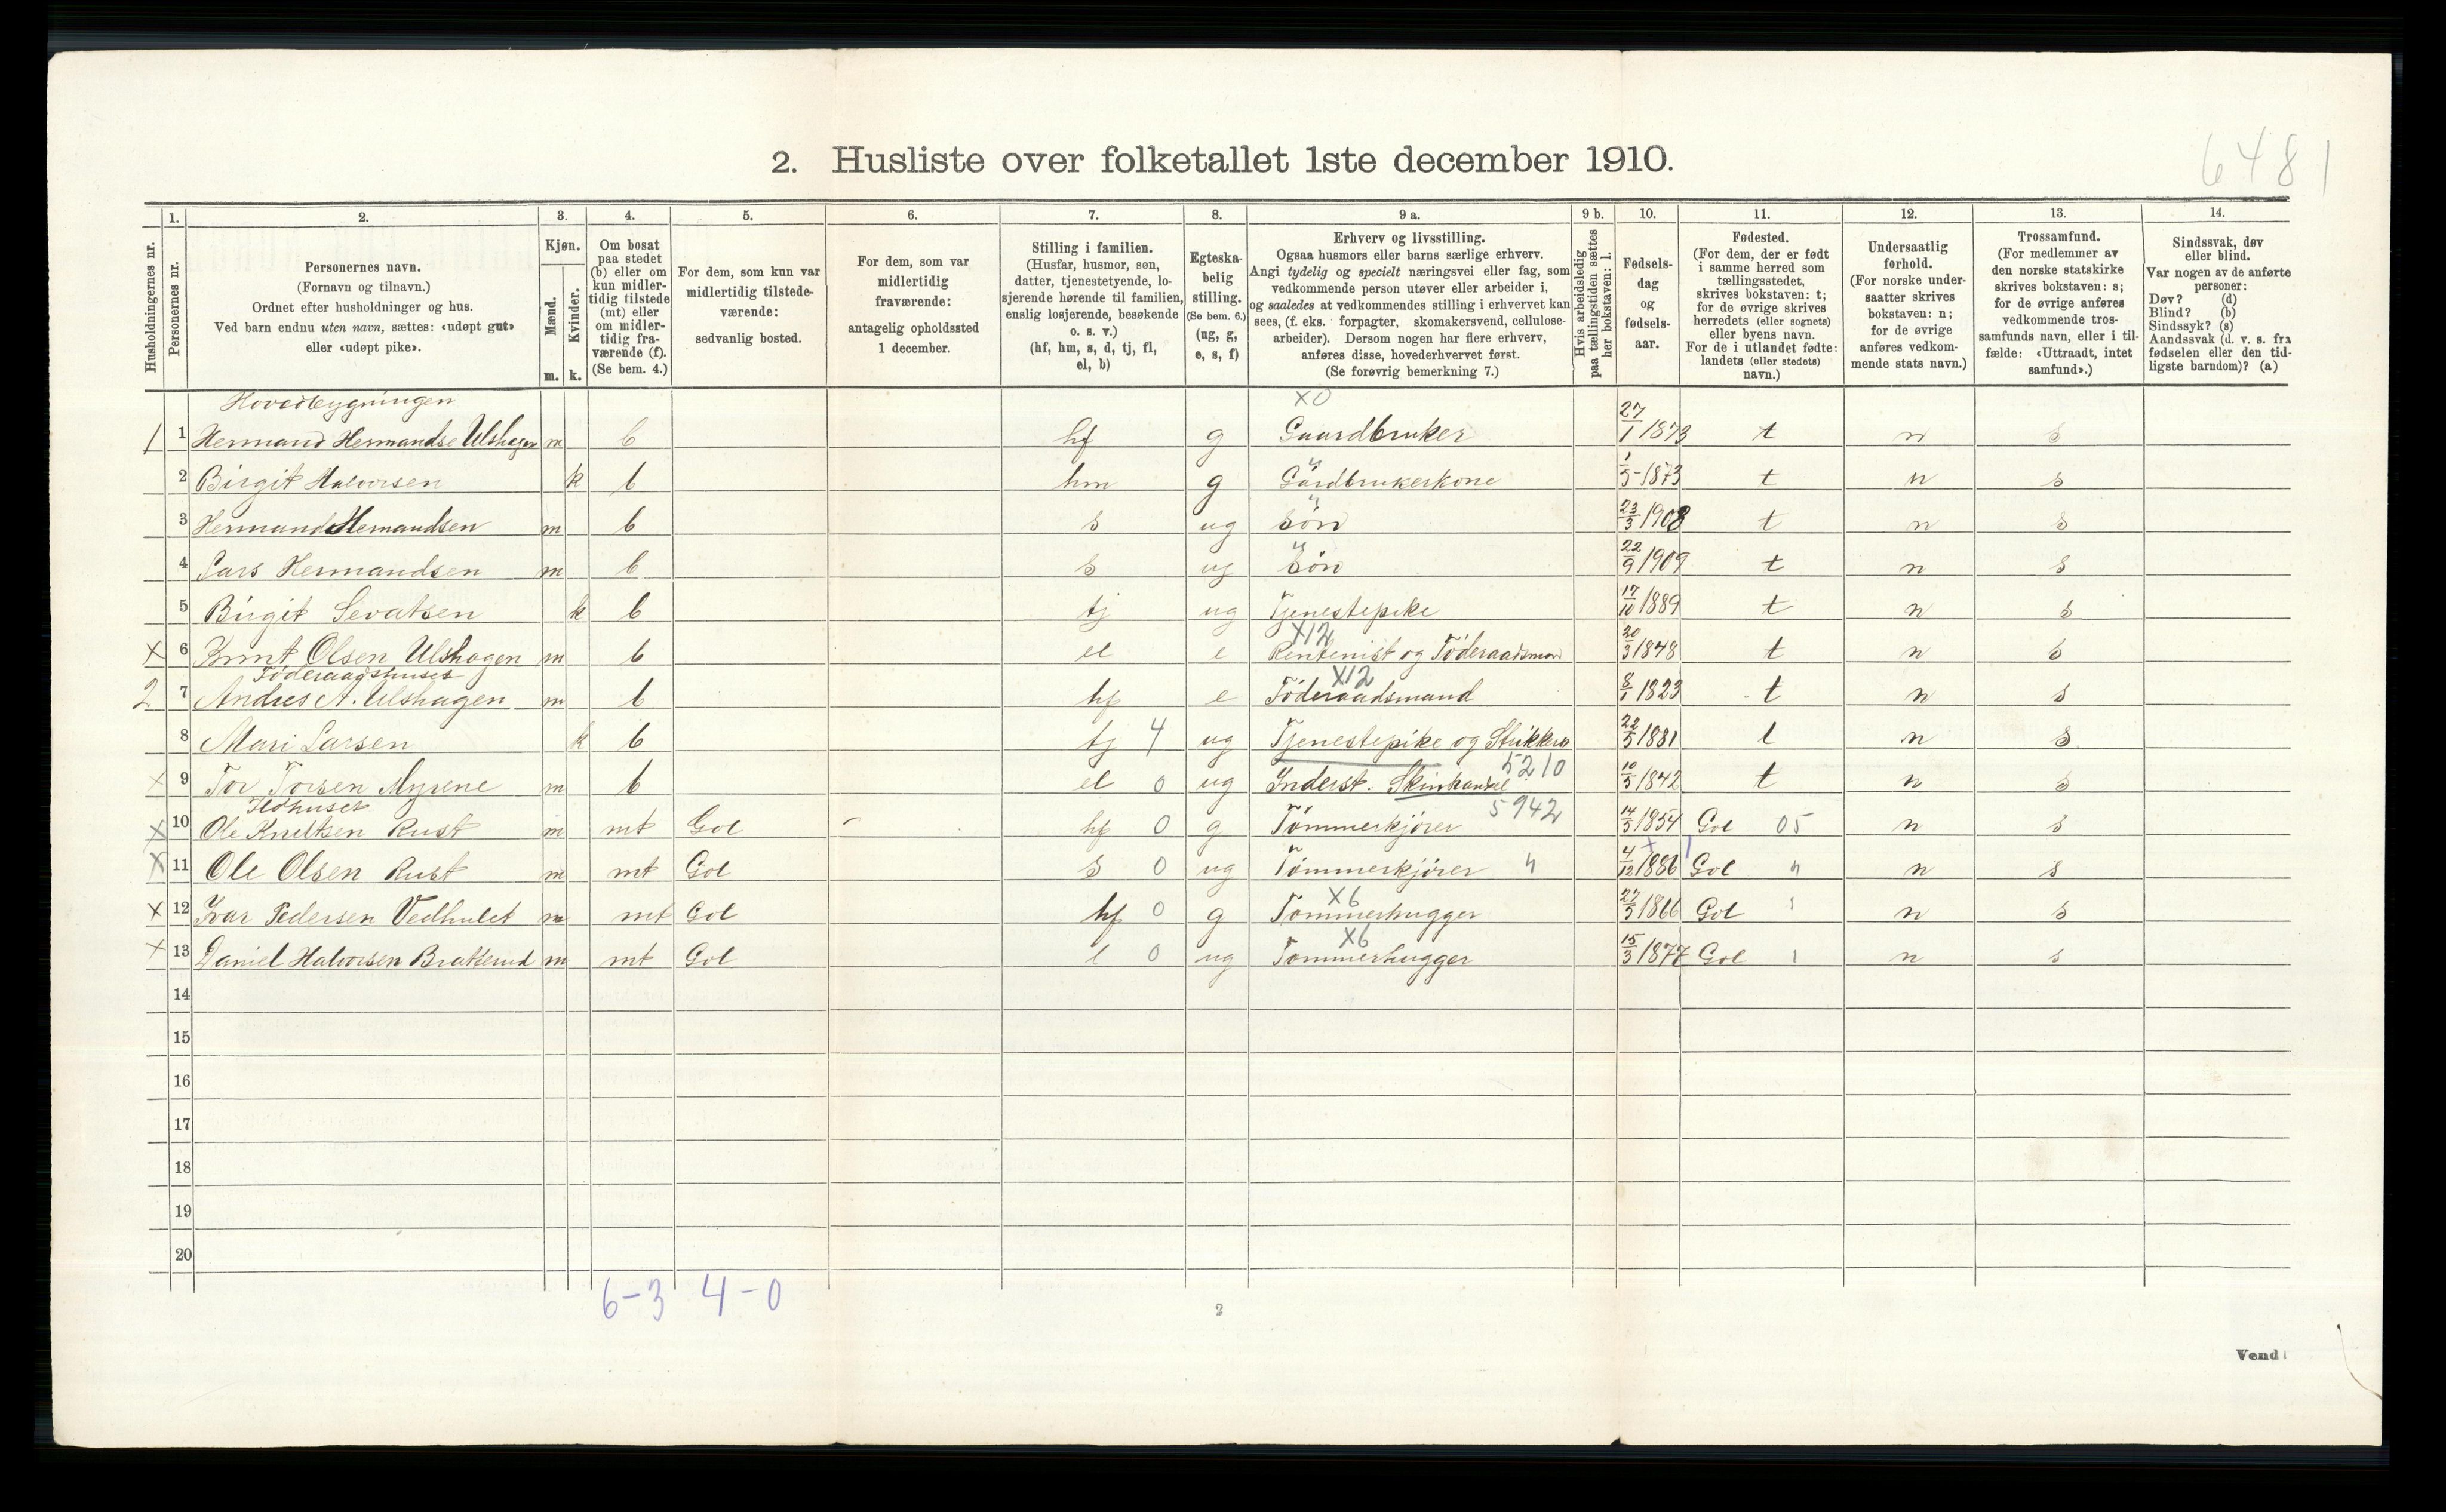 6481
2. Husliste over folketallet 1ste december 1910.
Husholdningernes nr.
1.
Personernes nr.
2.
Personernes navn.
(Fornavn og tilnavn.)
Ordnet efter husholdninger og hus.
Ved barn endnu uten navn, sættes: «udøpt gut»
eller «udøpt pike».
3.
Kjøn.
Mænd.
Kvinder.
m. k.
4.
Om bosat
paa stedet
(b) eller om
kun midler-
tidig tilstede
(mt) eller
om midler-
tidig fra-
værende (f).
(Se bem. 4.)
5.
For dem, som kun var
midlertidig tilstede-
værende:
sedvanlig bosted.
6.
For dem, som var
midlertidig
fraværende:
antagelig opholdssted
1 december.
7.
Stilling i familien.
(Husfar, husmor, søn,
datter, tjenestetyende, lo-
sjerende hørende til familien,
enslig losjerende, besøkende
o. s. v.)
(hf, hm, s, d, tj, fl,
el, b)
8.
Egteska-
belig
stilling.
(Se bem. 6.)
(ug, g,
e, s, f)
9 a.
Erhverv og livsstilling.
Ogsaa husmors eller barns særlige erhverv.
Angi tydelig og specielt næringsvei eller fag, som
vedkommende person utøver eller arbeider i,
og saaledes at vedkommendes stilling i erhvervet kan
sees, (f. eks. forpagter, skomakersvend, cellulose-
arbeider). Dersom nogen har flere erhverv,
anføres disse, hovederhvervet først.
(Se forøvrig bemerkning 7.)
9 b.
Hvis arbeidsledig
paa tællingstiden sættes
her bokstaven: l.
10.
Fødsels-
dag
og
fødsels-
aar.
11.
Fødested.
(For dem, der er født
i samme herred som
tællingsstedet,
skrives bokstaven: t;
for de øvrige skrives
herredets (eller sognets)
eller byens navn.
For de i utlandet fødte:
landets (eller stedets)
navn.)
12.
Undersaatlig
forhold.
(For norske under-
saatter skrives
bokstaven: n;
for de øvrige
anføres vedkom-
mende stats navn.)
13.
Trossamfund.
(For medlemmer av
den norske statskirke
skrives bokstaven: s;
for de øvrige anføres
vedkommende tros-
samfunds navn, eller i til-
fælde: «Uttraadt, intet
samfund».)
14.
Sindssvak, døv
eller blind.
Var nogen av de anførte
personer:
Døv? (d)
Blind? (b)
Sindssyk? (s)
Aandssvak (d. v. s. fra
fødselen eller den tid-
ligste barndom)? (a)
Hovedbygningen X0
1 1 Hermand Hermandse Ulshagen m b hf g Gaardbruker 27/1 1873 t n s
2 Birgit Halvorsen k b hm g Gårdbrukerkone 1/5 1873 t n s
3 Hermand Hemandsen m b s ug Søn 23/3 1908 t n s
4 Lars Hermandsen m b s ug Søn 22/9 1909 t n s
5 Birgit Sevatsen k b tj ug Tjenestepike 17/10 1889 t n s
X12
X 6 Knut Olsen Ulshagen m b el e Rentenist og Föderaadsman 20/3 1848 t n s
Föderaadshuset X12
2 7 Andres A. Ulshagen m b hf e Föderaadsmand 8/1 1823 t n s
8 Mari Larsen k b tj 4 ug Tjenestepike og 22/5 1881 t n s
5210
X 9 Tor Torsen Myrene m b el 0 ug Inderst. Skinhandel 10/5 1842 t n s
Ildhuset 5942
X 10 Ole Knutsen Rust m mt Gol hf 0 g Tömmerkjörer 14/5 1854 Gol 05 n s
X 11 Ole Olsen Rust m mt Gol s 0 ug Tömmerkjörer " 4/12 1886 Gol " n s
X6
X 12 Ivar Pedersen Vedhulet m mt Gol hf 0 g Tömmerhugger 27/5 1866 Gol " n s
X6
X 13 Daniel Halvorsen Bratterud m mt Gol l 0 ug Tommerhugger 15/3 1877 Gol " n s
14
15
16
17
18
19
20
6-3 4-0
2
Vend